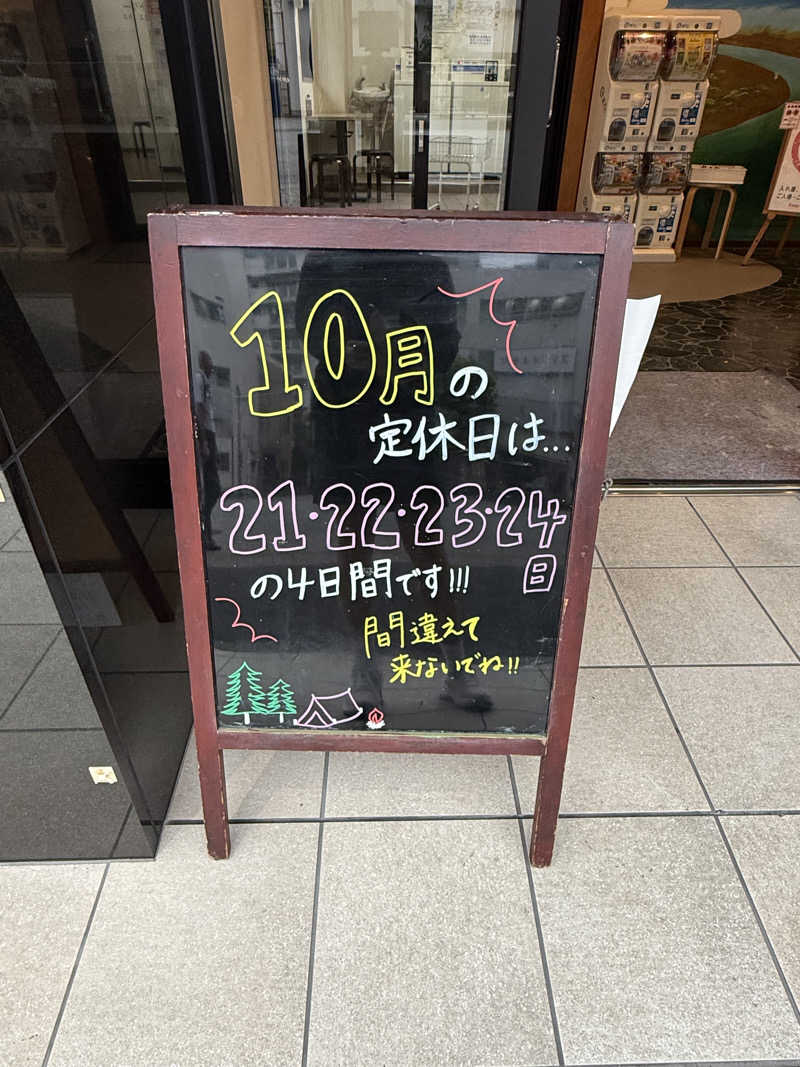 10月の
定休日は...
21・22・23・24
日
の4日間です!!!
間違えて
来ないでね!!